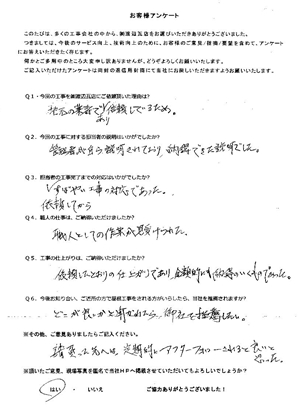 お客様アンケート
このたびは、多くの工事会社の中から、御渡辺瓦店をお選びいただきありがとうございました。
つきましては、今後のサービス向上、技術向上のために、お客様のご意見/御感/要望を含めて、アンケート
にお答えいただきたく存じます。
何かとご多用中のところ大変申し訳ありませんが、どうぞよろしくお願いいたします。
ご記入いただけたアンケートは同封の返信用封筒にて当社にお戻しくださいますようお願いいたします。
Q1・今回の工事を御渡辺瓦店にご依頼頂いた理由は?
地元の業者で 依頼しているため。
Q2・今回の工事に対する担当者の説明はいかがでしたか?
説明されており、納得できた説明でした。
Q3．担当者の工事完了までの対応はいかがでしたか?
すばやい工事の対応であった。
依頼してから
Q4．職人の仕事は、ご納得いただけましたか?
職人としての作業が見受けられた。
Q5．工事の仕上がりは、ご納得いただけましたか?
依頼したとおりの仕上がりであり、金額的にも納得いくものであった。
Q6．今後お知り合い、ご近所の方で屋根工事をされる方がいらしたら、当社を推薦されますか?
どこが良いかと聞かれたら、御社を推薦したい。
※その他、ご意見ありましたらご記入ください。
定期的にアフターフォローされると良いと
思った。
※頂いたご意見、現場写真を匿名で当社HPへ掲載させていただいてもよろしいでしょうか?
はい ・ いいえ ご協力ありがとうございました!